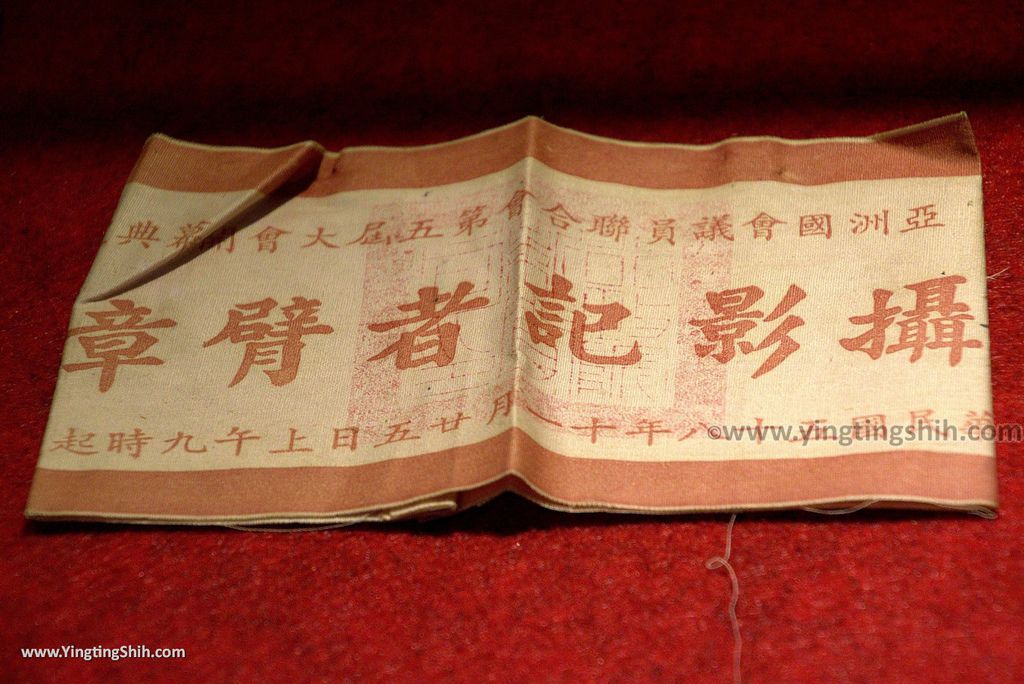 亞洲國會議員聯合會第五屆大會開幕典
攝影記者臂章
民國五十八年十一月廿五日上午九時起
©www.yingtingshih.com
www.YingtingShih.com